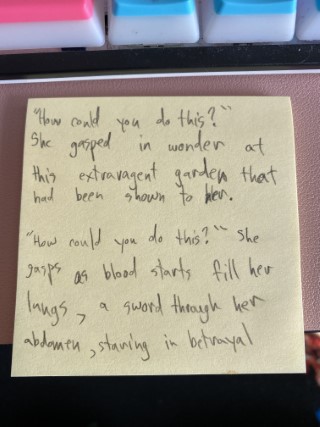 "How could you do this?"
She gasped in wonder at
this extravagent garden that
had been shown to her.
"How could you do this?" she
gasps as blood starts fill her
lungs, a sword through her
abdomen, staring in betrayal